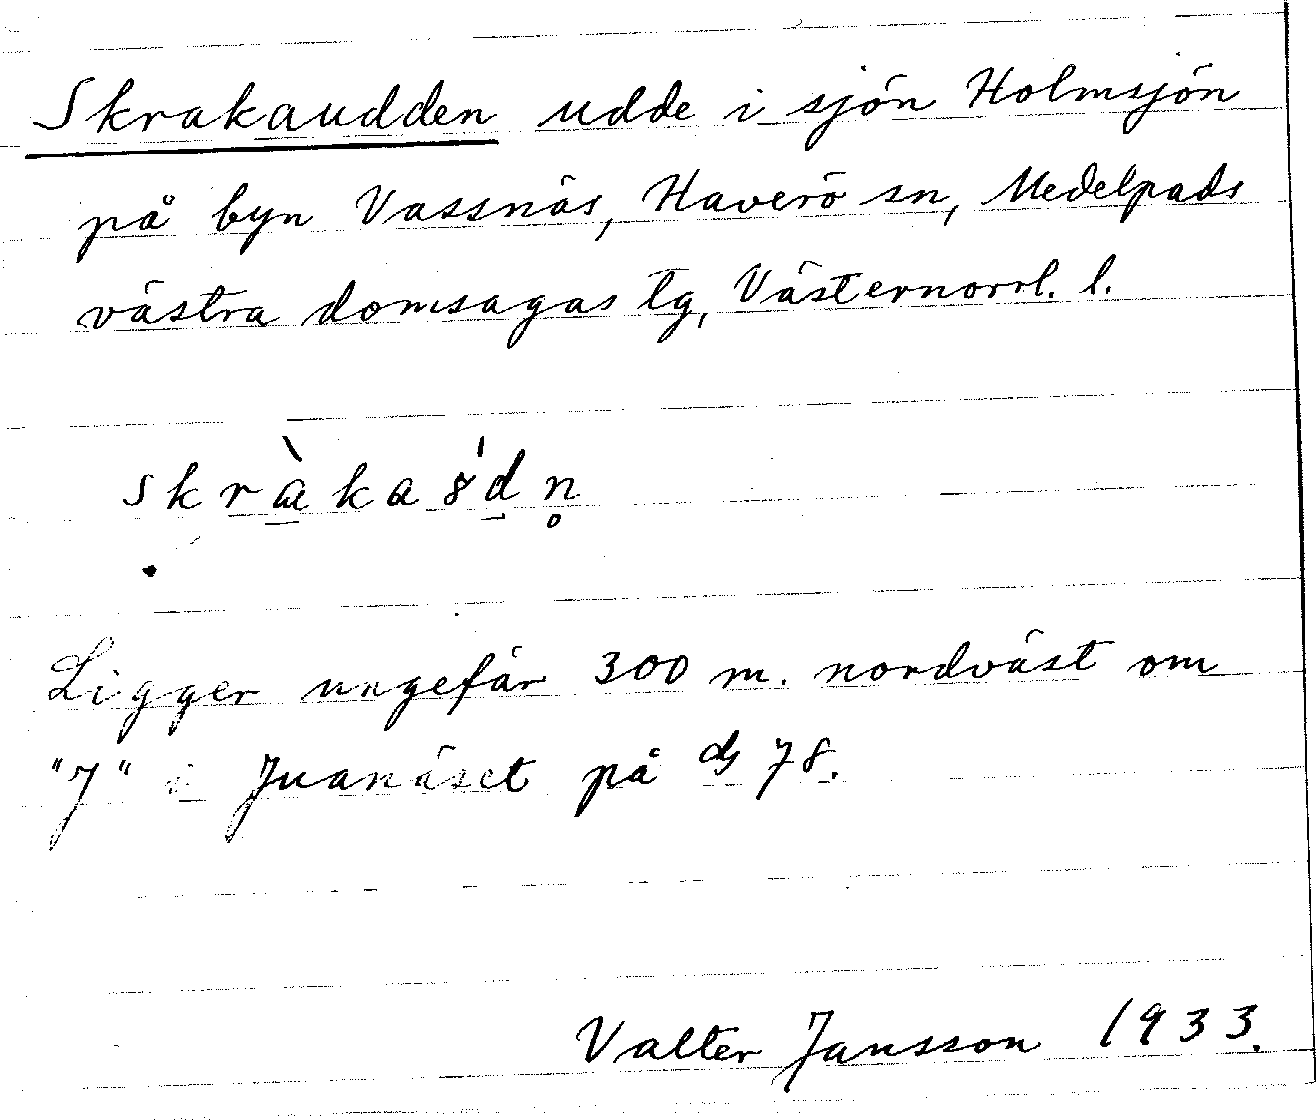 Skrakaudden udde i sjön Holmsjön
på byn Vassnäs, Haverö sn, Medelpads
västra domsagas tg, Västernorrl. l.
skràka8́dn̥
Ligger ungefär 300 m. nordväst om
"J" i Juanäset på 78.
Valter Jansson 1933.